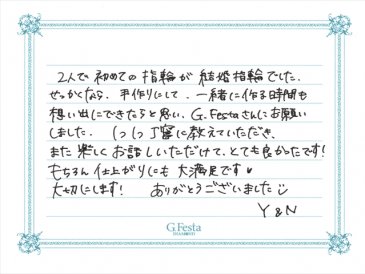 2人で初めての指輪が結婚指輪でした。
せっかくなら、手作りにして、一緒に作る時間も
想い出にできたらと思い、G.Festaさんにお願い
しました。1つ1つ丁寧に教えていただき、
また楽しくお話しいただけて、とても良かったです!
もちろん仕上がりにも大満足です♥
大切にします! ありがとうございました☺
Y&N
G.Festa
DIAMOND